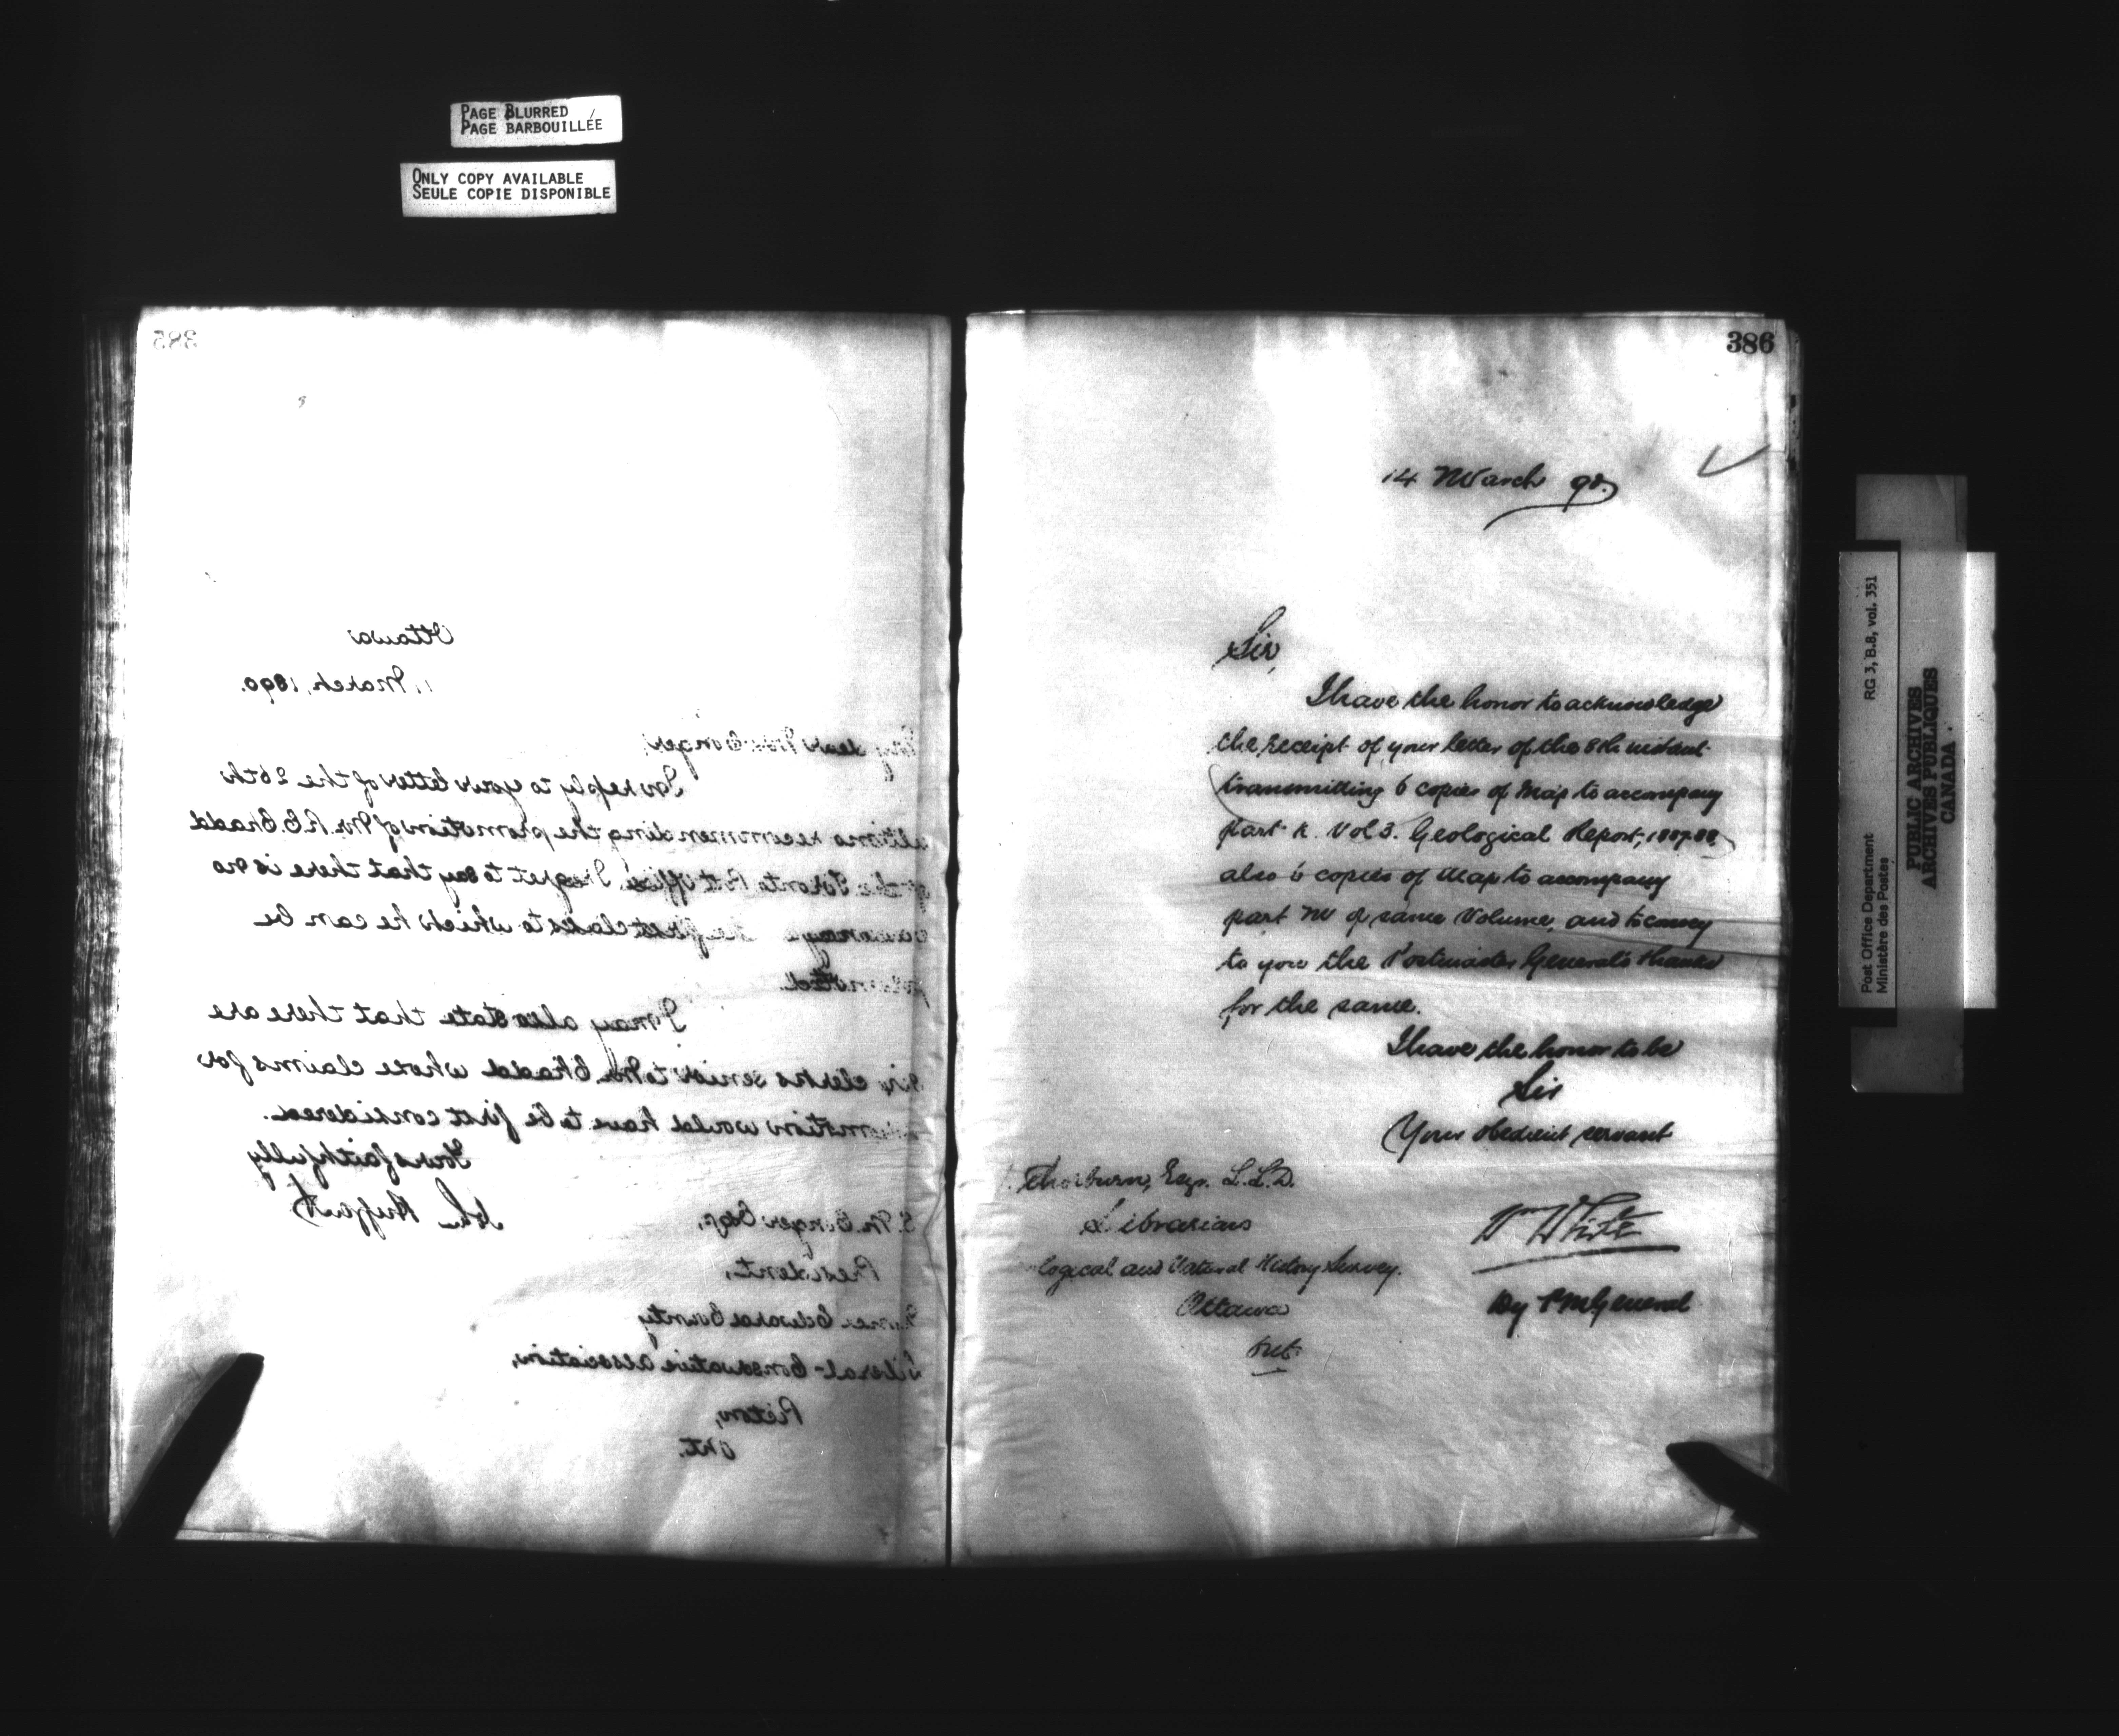 PAGE BLURRED
PAGE BARBOUILLÉE
ONLY COPY AVAILABLE
SEULE COPIE DISPONIBLE
385
Ottawa
March, 1890.
My dear Conger,
In reply to your letter of the 26th
ultimo recommending the promotion of Mr. R E
of the Toronto Post Office, I regret to say that there is no
vacancy in the first class to which he can be
promoted.
I may also state that there are
six clerks senior to Mr. whose claims for
promotion would have to be first considered.
Yours faithfully
John Haggart
S. M. Conger Esq,
President,
Prince Edward County
Liberal-Conservative Association,
Picton,
Ont.
386
14 March 90.
Sir,
I have the honor to acknowledge
the receipt of your letter of the 8th instant
transmitting 6 copies of Map to accompany
part K. Vol 3. Geological Report, 1887-88,
also 6 copies of Map to accompany
part M of same Volume, and to convey
to you the Postmaster General's thanks
for the same.
I have the honor to be
Sir
Your obedient servant
Thorburn, Esqr. L.L.D.
Librarian
logical and Natural History Survey.
Ottawa
Wm White
Dy P M General
RG 3, B.8, vol. 351
Post Office Department
Ministère des Postes
PUBLIC ARCHIVES
ARCHIVES PUBLIQUES
CANADA